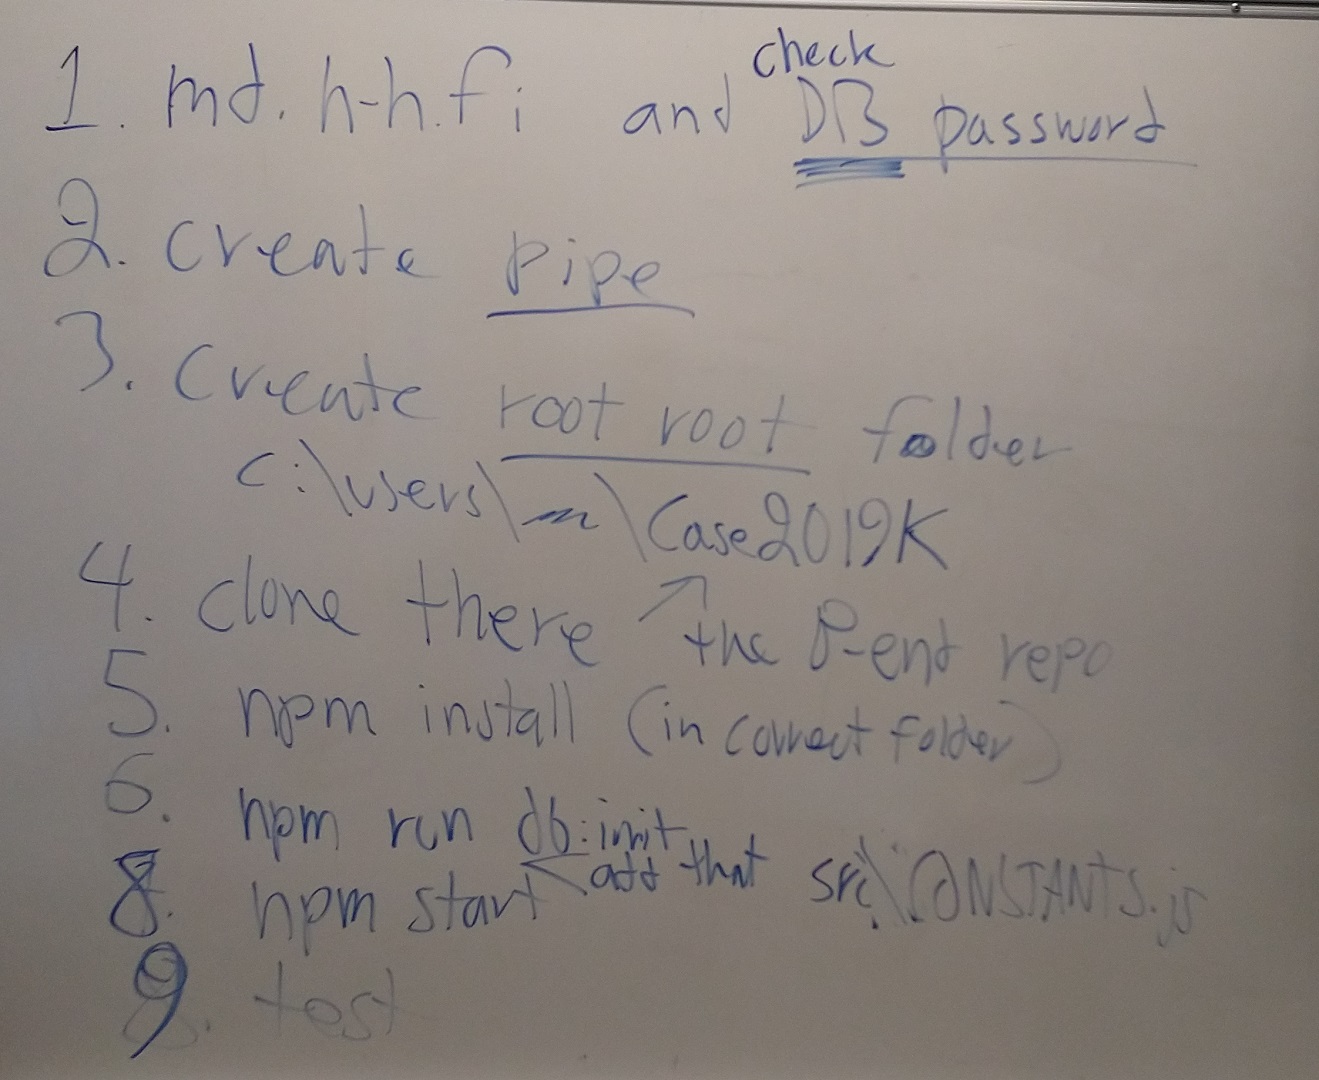 1. md.h-h.fi and check DB password
2. create pipe
3. Create root root folder
c:\users\ \Case2019K
4. clone there ↗ the B-end repo
5. npm install (in correct folder)
6. npm run db:init
8. npm start ← add that src\CONSTANTS.js
9. test